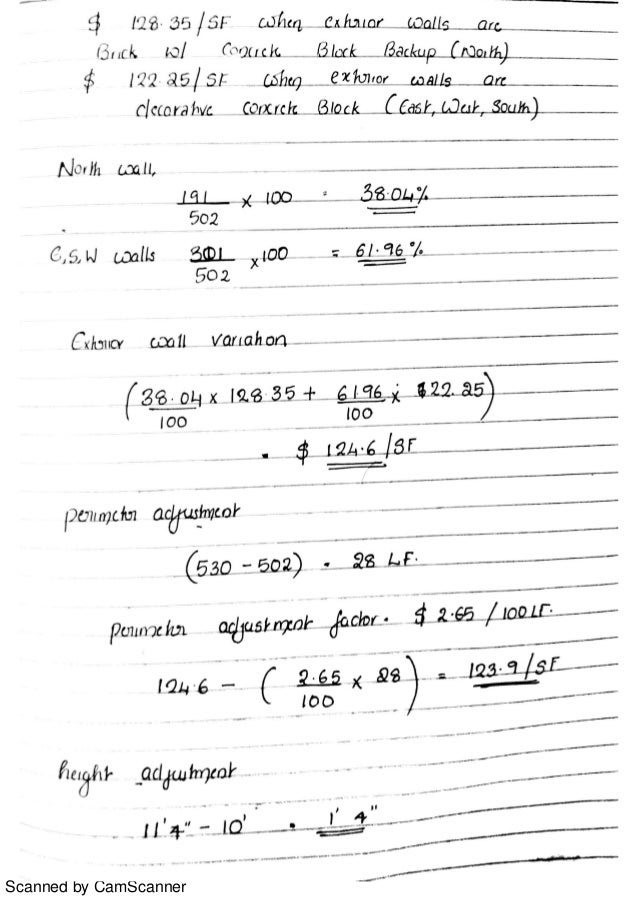 $ 128.35/SF when exterior walls are
Brick w/ Concrete Block Backup (North)
$ 122.25/SF when exterior walls are
decorative concrete Block (East, West, South)
North wall,
191/502 x 100 = 38.04%
E,S,W walls 301/502 x100 = 61.96%
Exterior wall variation
(38.04/100 x 128.35 + 6196/100 x $22.25)
= $ 124.6/SF
perimeter adjustment
(530 - 502) = 28 LF.
perimeter adjustment factor = $ 2.65 / 100 LF.
124.6 - (2.65/100 x 28) = 123.9/SF
height adjustment
11'4" - 10' = 1' 4"
Scanned by CamScanner